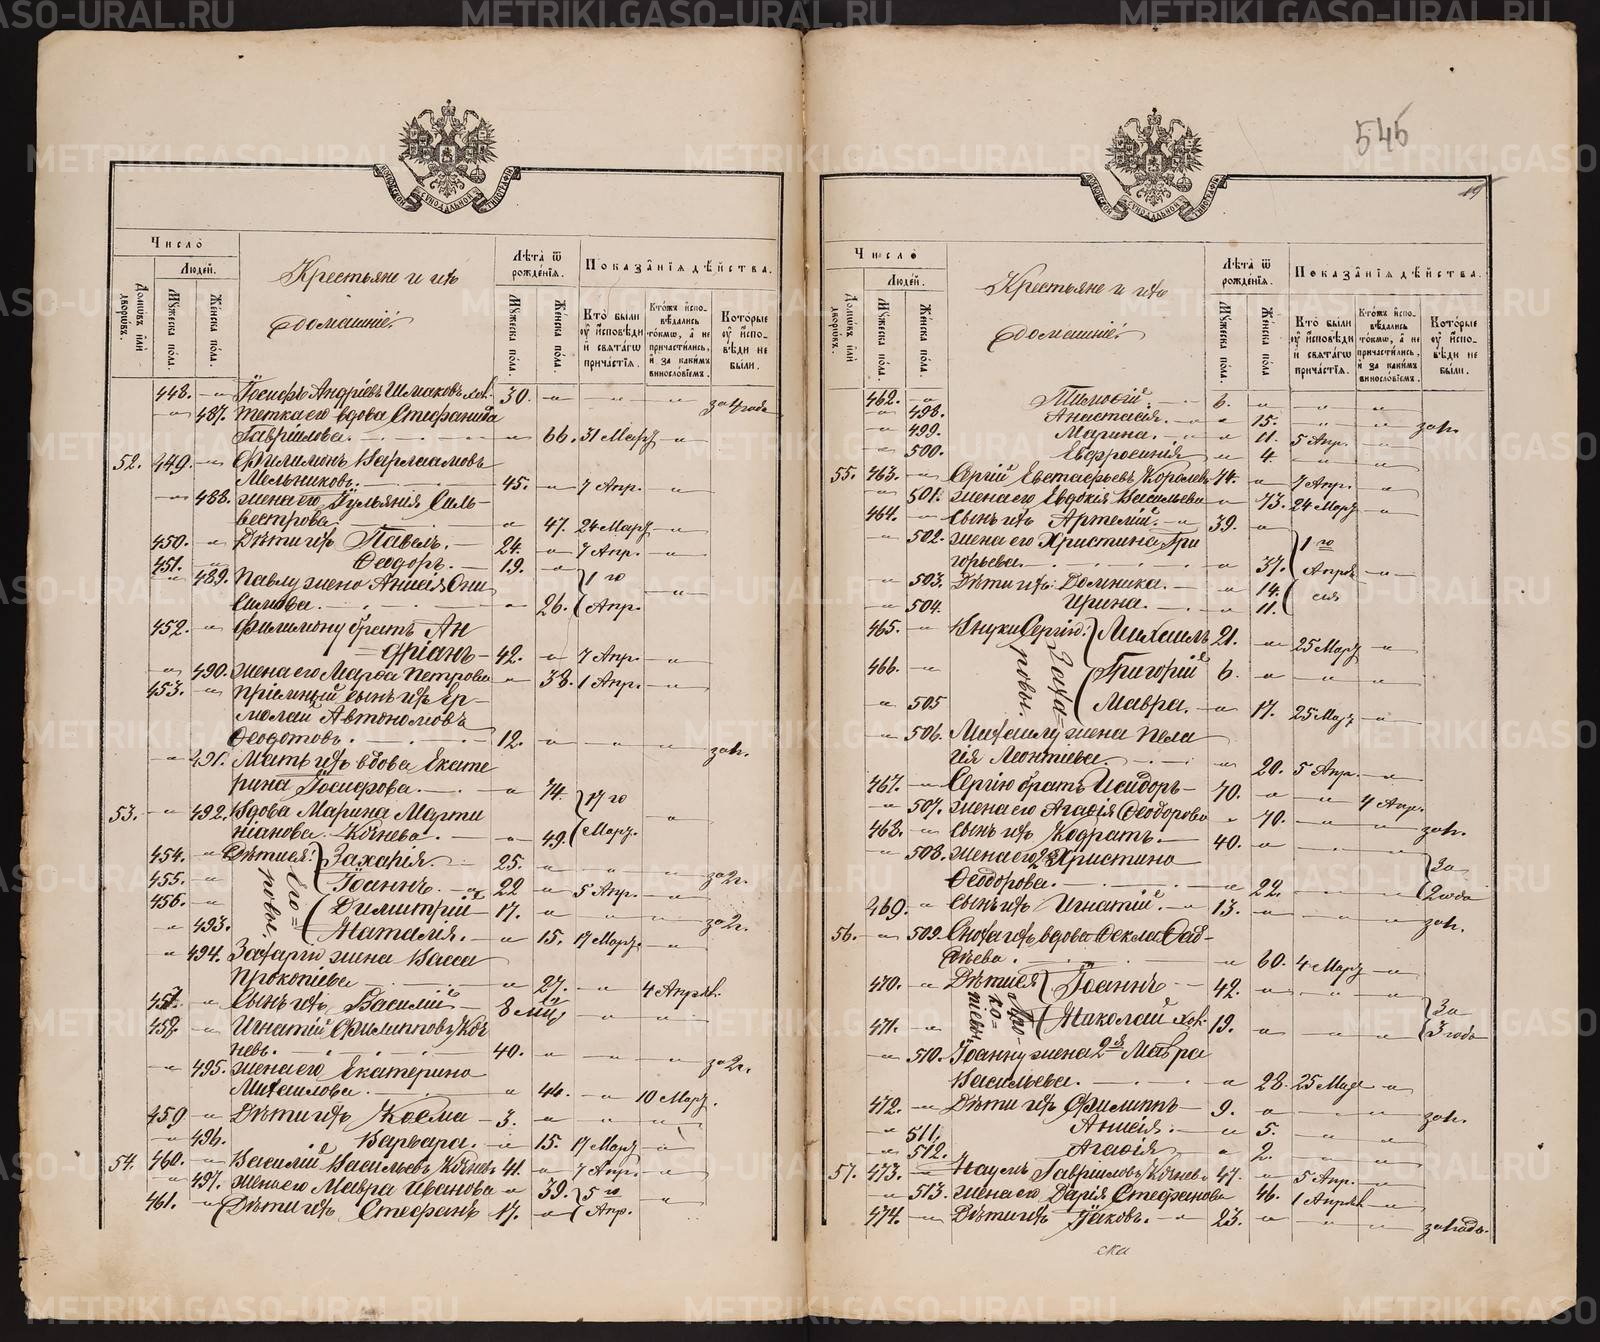 545
19
Число̀
Людей.
Домѡвъ илѝ дворѡвъ.
Мꙋжеска по́ла.
Же́нска по́ла.
Крестьяне и ихъ
домашніе:
Лѣта̀ ѿ рожде́нїѧ.
Мꙋжеска по́ла.
Же́нска по́ла.
Показа́нїѧ дѣ́йства.
Кто̀ были ᲂу҆ и҆сповѣди и҆ свѧта́гѡ прича́стїѧ.
Кто́жъ и҆спо-вѣдались то́кмѡ, а҆ не причасти́лись, и҆ за каки́мъ виносло́вїемъ.
Кото́рые ᲂу҆ и҆спо-вѣди не бы́ли.
448. — Іосифъ Андріевъ Шмаковъ хол. 30. — — — за 4 года
— 487. тетка его вдова Стефанида
Гавріилова. — 66. 31 Март —
52. 449. — Филимонъ Варлаамовъ
Мельниковъ. 45. — 7 Апр. —
— 488. жена его Іульянія Силь-
вестрова. — 47. 24 Март —
450. — Дѣти ихъ Павелъ. — 24. — 7 Апр. —
451. — Ѳеодоръ. — 19. —
— 489. Павлу жена Анисія Они
симова. — 26. 1 го Апр. —
452. — Филимону братъ Ан
дріанъ — 42. — 7 Апр. —
— 490. жена его Марѳа Петрова — 38. 1 Апр. —
453. — пріемный сынъ ихъ Ер-
молай Автономовъ
Ѳедотовъ. 12. — — — за 1г.
— 491. Мать ихъ вдова Екате
рина Іосифова. — 74. 17 го
53. — 492. Вдова Марина Марти
ніанова Кочнева. — 49. Март. —
454. — Дѣти ея: Захарія 25. — — — за 2г.
455. — Іоаннъ. 22 — 5 Апр. —
456. — Димитрій 17. — — — за 2г.
— 493. Наталія. — 15. 17 Март —
— 494. Захаріи жена Васса
Прокопіева — 27. — 4 Апрѣл.
457. — Сынъ ихъ Василій 8 мц — — —
458. — Игнатій Филипповъ Коч
невъ. 40. — — — за 2г.
— 495. жена его Екатерина
Михаилова. — 44. — 10 Март.
459 — Дѣти ихъ Косма — 3. — — —
— 496. Варвара. — 15. 17 Март —
54. 460. — Василій Васильевъ Кочневъ 41. — 7 Апр. —
— 497. жена его Мавра Иванова — 39. 5 го —
461. — Дѣти ихъ Стефанъ 17. — Апр.
Число̀
Людей.
Домѡвъ илѝ дворѡвъ.
Мꙋжеска по́ла.
Же́нска по́ла.
Крестьяне и ихъ
домашніе:
Лѣта̀ ѿ рожде́нїѧ.
Мꙋжеска по́ла.
Же́нска по́ла.
Показа́нїѧ дѣ́йства.
Кто̀ были ᲂу҆ и҆сповѣди и҆ свѧта́гѡ прича́стїѧ.
Кто́жъ и҆спо-вѣдались то́кмѡ, а҆ не причасти́лись, и҆ за каки́мъ виносло́вїемъ.
Кото́рые ᲂу҆ и҆спо-вѣди не бы́ли.
462. — Тимоѳій. 6. — — —
— 498. Анастасія. — 15. — — за 1г.
— 499. Марина. — 11. 5 Апр. —
— 500. Евфросинія — 4. — —
55. 463. — Сергій Евстафьевъ Королевъ 74. — 7 Апр. —
— 501. жена его Евдокія Васильева — 73. 24 Март —
464. — Сынъ ихъ Артемій. — 39. —
— 502. жена его Христина Гри
горьева. — 37. 1 го Апрѣ ля —
— 503. Дѣти ихъ: Домника. — 14.
— 504. Ирина. — 11.
465. — Внуки Сергію: Михаилъ 21. — 25 Март —
Захаровы.
466. — Григорій 6. — — —
— 505 Мавра. — 17. 25 Март —
— 506. Михаилу жена Пела
гія Леонтіева. — 20. 5 Апр. —
467. — Сергію братъ Исидоръ — 70. — — 4 Апр.
— 507. жена его Агаѳія Ѳеодорова — 70. — — за 1г.
468. — сынъ ихъ Кодратъ. — 40. —
— 508. жена его 2я Христина
Ѳеодорова. — 22. — — За 2 года
469. — Сынъ ихъ Игнатій. — 13. — — — за 1г.
56. — 509. Сноха ихъ вдова Ѳекла Ѳад-
дѣева. — 60. 4 Март —
470. — Дѣти ея Іоаннъ — 42. — — —
Прокопіевы.
471. — Николай хол. 19. — — — За 3 года
— 510. Іоанну жена 2я Мавра
Васильева. — 28. 25 Март —
472. — Дѣти ихъ Филиппъ — 9. — — — за 1г.
— 511. Анисія. — 5. — —
— 512. Агаѳія — 2. — —
57. 473. — Наумъ Гавриловъ Кочневъ 47. — 5 Апр. —
— 513. жена его Дарія Стефанова 46. 1 Апрѣл —
474. — Дѣти ихъ Іаковъ. — 23. — — — за 1 годъ.
ска